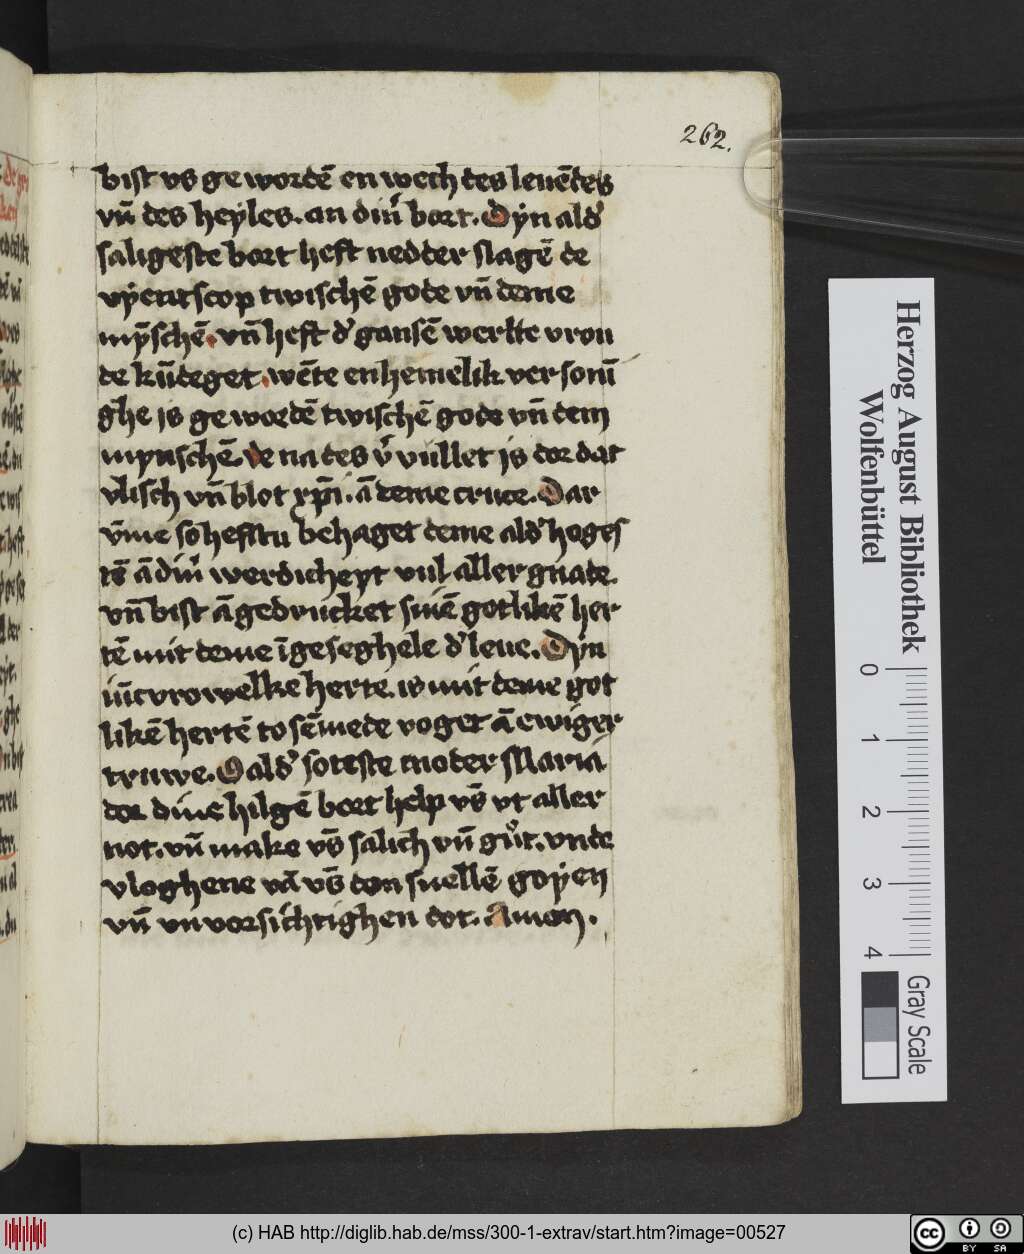 262.
bist vs ge wordē en wech des leuēdes
vn̄ des heyles. an din̄ bort. Dyn ald'
saligeste bort heft nedder slagē de
vyentscop twischē gode vn̄ deme
mȳschē. vn̄ heft d' gansē werlte vrou
de kūdeget. wēte en hemelik ver sonī
ghe is ge wordē twischē gode vn̄ dem
mynschē. de na des v' vullet is dor dat
vlisch vn̄ blot xp̄i. ā deme cruce. Dar
v̄me so hefstu behaget deme ald' hoges
tē ā din̄ werdicheyt vul aller gnade.
vn̄ bist ā gedrucket sinē gotlikē her
tē mit deme īgeseghele d' leue. Dyn
iūcvrowelke herte. is mit deme got
likē hertē to sēmede voget ā ewiger
truwe. O ald' soteste moder Maria
dor dine hilgē bort help vs̄ vt aller
not. vn̄ make vs̄ salich vn̄ gůt. vnde
vloghene vā vs̄ den snellē goyen
vn̄ vn vorsichtighen dot. Amen.
Herzog August Bibliothek
Wolfenbüttel
0 1 2 3 4
Gray Scale
(c) HAB http://diglib.hab.de/mss/300-1-extrav/start.htm?image=00527
cc BY SA